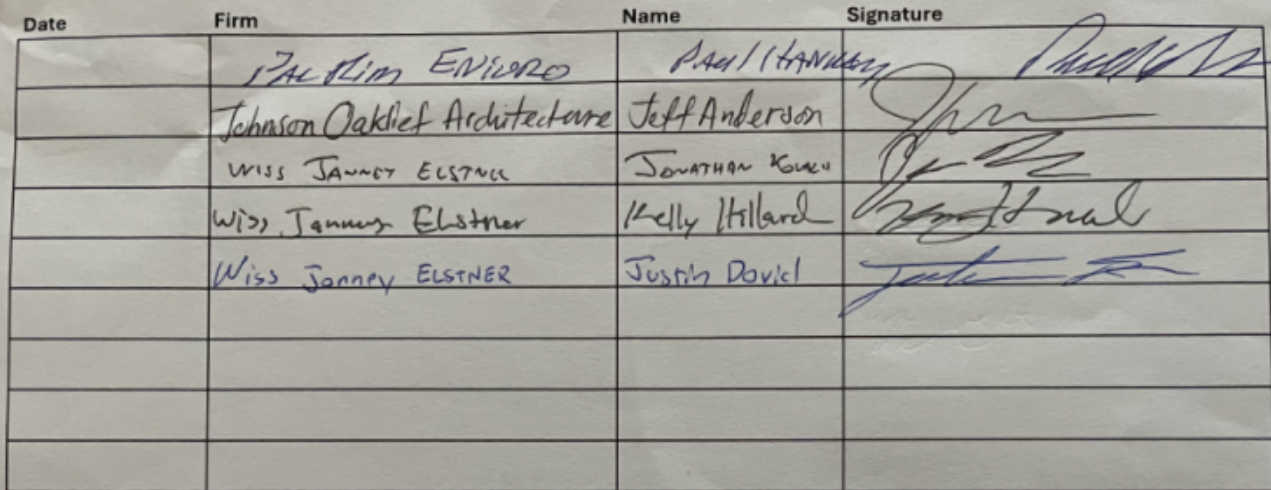 Date Firm Name Signature
PAC RIM ENVIRO PAUL
Johnson Oaklief Architecture Jeff Anderson
WISS JANNEY ELSTNER JONATHAN
Wiss, Janney Elstner Kelly Hillard
Wiss Janney ELSTNER Justin David